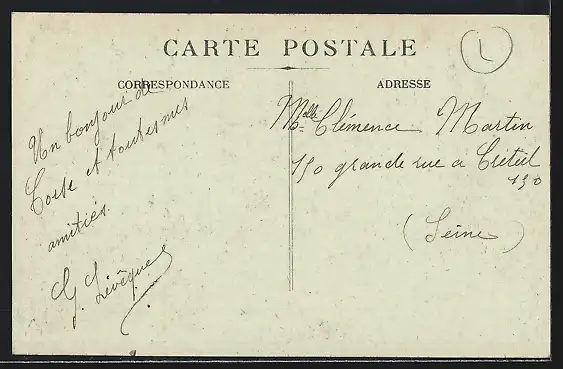 CARTE POSTALE
L
CORRESPONDANCE
ADRESSE
Un bonjour de
et toutes mes
amitiés.
G. Lévêque
Melle Clémence Martin
150 grande rue a Créteil
150
(Seine)